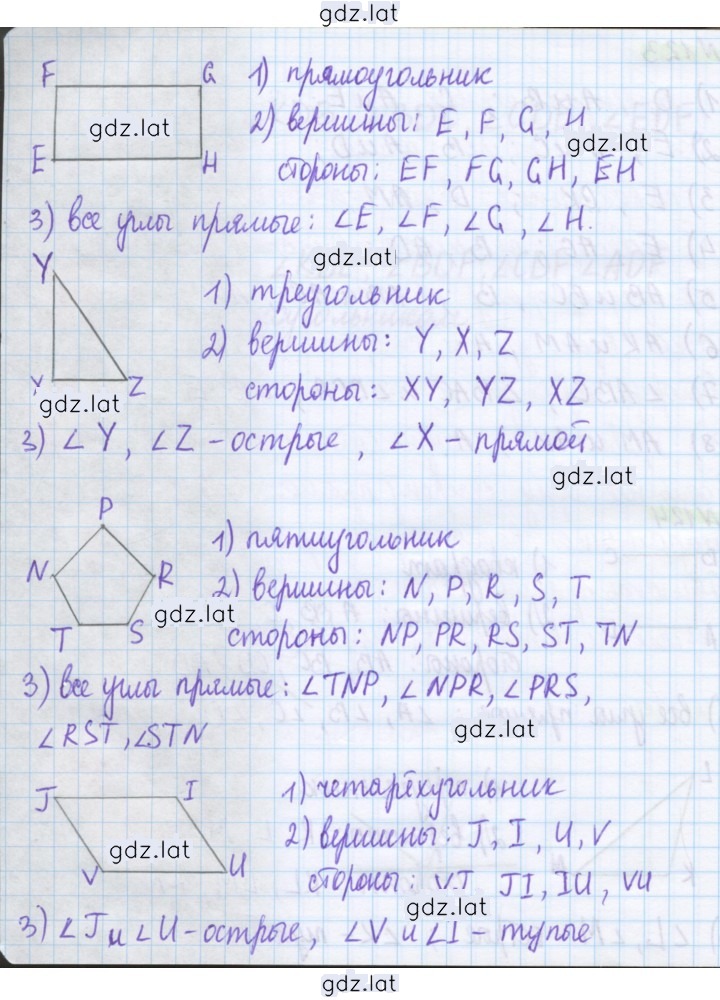 gdz.lat
F G 1) прямоугольник
gdz.lat 2) вершины: E, F, G, H
gdz.lat
E H стороны: EF, FG, GH, EH
3) все углы прямые: ∠E, ∠F, ∠G, ∠H.
gdz.lat
Y
1) треугольник
2) вершины: Y, X, Z
X Z стороны: XY, YZ, XZ
gdz.lat
3) ∠Y, ∠Z - острые, ∠X - прямой
gdz.lat
P
1) пятиугольник
N R 2) вершины: N, P, R, S, T
gdz.lat
T S стороны: NP, PR, RS, ST, TN
3) все углы прямые: ∠TNP, ∠NPR, ∠PRS,
gdz.lat
∠RST, ∠STN
J I 1) четарёхугольник
2) вершины: J, I, U, V
gdz.lat
V U стороны: VJ JI, IU, VU
gdz.lat
3) ∠J и ∠U - острые, ∠V и ∠I - тупые
gdz.lat